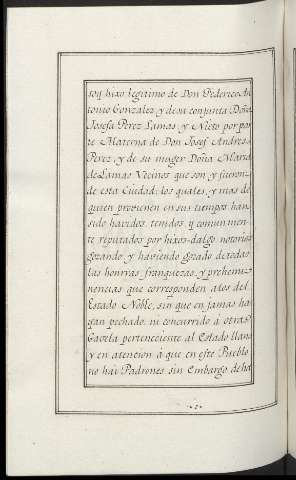 soy hixo legitimo de Don Federico An
tonio Gonzalez, y de su conjunta Doña
Josefa Perez Lamas, y Nieto por par
te Materna de Don Josef Andres
Perez, y de su muger Doña Maria
de Lamas Vecinos que son, y fueron
de esta Ciudad: los quales, y mas de
quien provienen en sus tiempos han
sido havidos, tenidos, y comunmen
te reputados por hixos-dalgo notorios
gozando, y haviendo gozado de todas
las honrras, franquezas, y prehemi
nencias que corresponden a los del
Estado Noble, sin que en jamas ha
yan pechado, ni concurrido á otra
Gavela perteneciente al Estado llano
y en atencion á que en este Pueblo
no hai Padrones sin embargo de ha